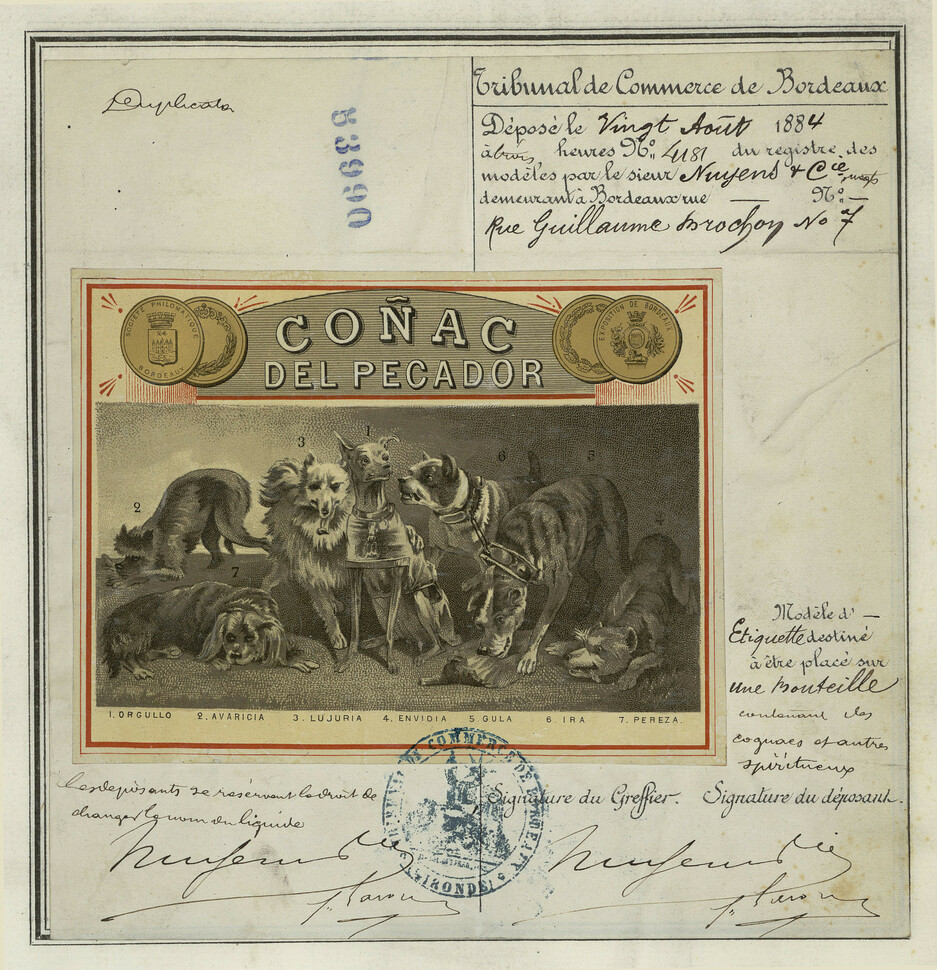 Duplicata
83990
Tribunal de Commerce de Bordeaux
Déposé le Vingt Août 1884
à trois heures No. 4181 du registre des
modèles par le sieur Nuyens & Cie
demeurant à Bordeaux rue — No. —
Rue Guillaume Brochon No 7
SOCIÉTÉ PHILOMATIQUE
BORDEAUX
EXPOSITION DE BORDEAUX
COÑAC
DEL PECADOR
3
1
6
5
2
4
7
1. ORGULLO 2. AVARICIA 3. LUJURIA 4. ENVIDIA 5. GULA 6. IRA 7. PEREZA.
Modèle d' —
Etiquette destiné
à être placé sur
une Bouteille
contenant des
cognacs et autres
spiritueux
Les déposants se réservant le droit de
changer le nom du liquide
Signature du Greffier. Signature du déposant.
COMMERCE DE BORDEAUX
(GIRONDE)
Nuyens & Cie
Nuyens & Cie